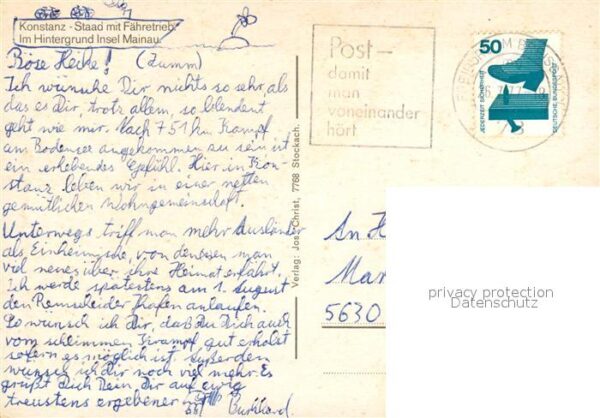 Konstanz - Staad mit Fähretrieb.
Im Hintergrund Insel Mainau.
Böse Heike! (Dumm)
Ich wünsche Dir nichts so sehr, als
das es Dir, trotz allem, so blendent
geht wie mir. Nach 751 km Krampf
am Bodensee angekommen zu sein ist
ein erhebendes Gefühl. Hier in Kon-
stanz leben wir in einer netten
gemütlichen Wohngemeinschaft.
Unterwegs triff man mehr Ausländer
als Einheimische, von denen man
viel neues über ihre Heimat erfährt.
Ich werde spätestens am 1. August
den Remscheider Hafen anlaufen.
So wünsch ich Dir, daß Du Dich auch
vom schlimmen Krampf gut erholst
sofern es möglich ist. Außerdem
wünsch ich Dir noch viel mehr. Es
grüßt Dich Dein Dir auf ewig
treustens ergebener
Burkhard.
Verlag: Jos. Christ, 7768 Stockach.
Post-
damit
man
voneinander
hört
50
JEDERZEIT SICHERHEIT
DEUTSCHE BUNDESPOST
An H
Mar
5630
privacy protection
Datenschutz